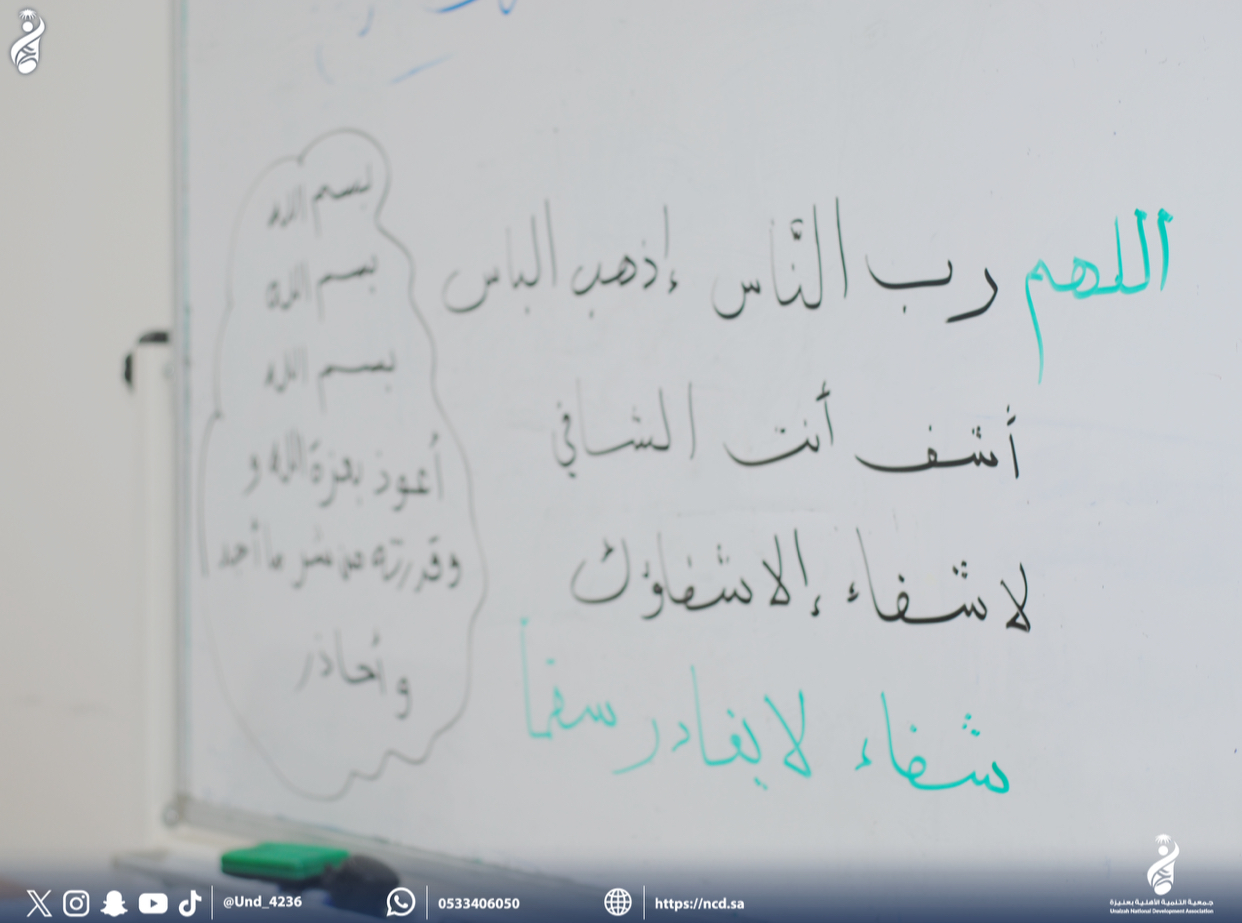 اللهم رب النّاس إذهب الباس
أشف أنت الشافي
لا شفاء إلا شفاؤك
شفاء لا يغادر سقما
بسم الله
بسم الله
بسم الله
أعوذ بعزة الله و
وقدرته من شر ما أجد
وأحاذر
@Und_4236
0533406050
https://ncd.sa
جمعية التنمية الأهلية بعنيزة
Unaizah National Development Association